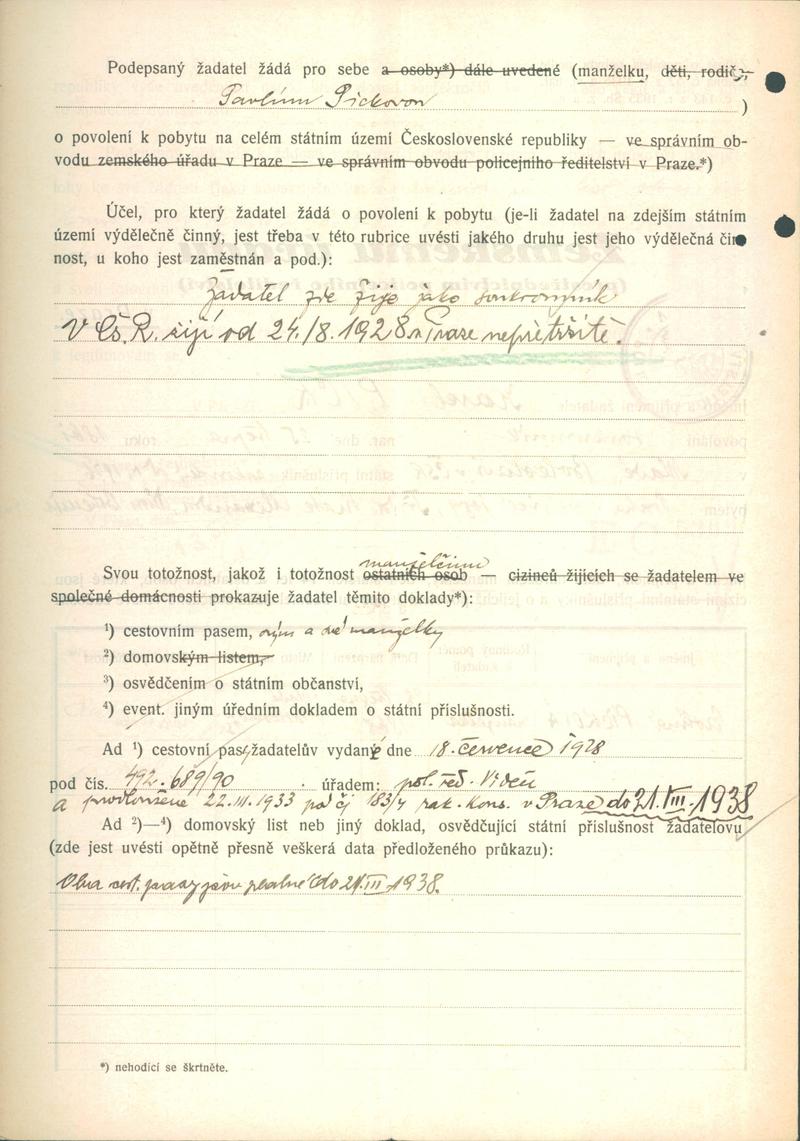 Podepsaný žadatel žádá pro sebe a osoby*) dále uvedené (manželku, děti, rodiče,
Pavlínu Pickovou )
o povolení k pobytu na celém státním území Československé republiky — ve správním ob-
vodu zemského úřadu v Praze — ve správním obvodu policejního ředitelství v Praze.*)
Účel, pro který žadatel žádá o povolení k pobytu (je-li žadatel na zdejším státním
území výdělečně činný, jest třeba v této rubrice uvésti jakého druhu jest jeho výdělečná čin-
nost, u koho jest zaměstnán a pod.):
Žadatel zde žije jako soukromník
V Čs. R. žijí od 24./8. 1928 v Praze nepřetržitě.
manželčinu
Svou totožnost, jakož i totožnost ostatních osob — cizinců žijících se žadatelem ve
společné domácnosti prokazuje žadatel těmito doklady*):
¹) cestovním pasem, svým a své manželky
²) domovským listem,
³) osvědčením o státním občanství,
⁴) event. jiným úředním dokladem o státní příslušnosti.
Ad ¹) cestovní pasy žadatelův vydané dne 18. července 1928
pod čís. 492.689/90 úřadem: pol. řed. Vídeň
a prodloužené 22. III. 1933 pod čj 183/4 rak. kons. v Praze do 21. VIII. 1938
Ad ²)—⁴) domovský list neb jiný doklad, osvědčující státní příslušnost žadatelovu
(zde jest uvésti opětně přesně veškerá data předloženého průkazu):
Oba cest. pasy jsou platné do 21. III. 1938.
*) nehodící se škrtněte.